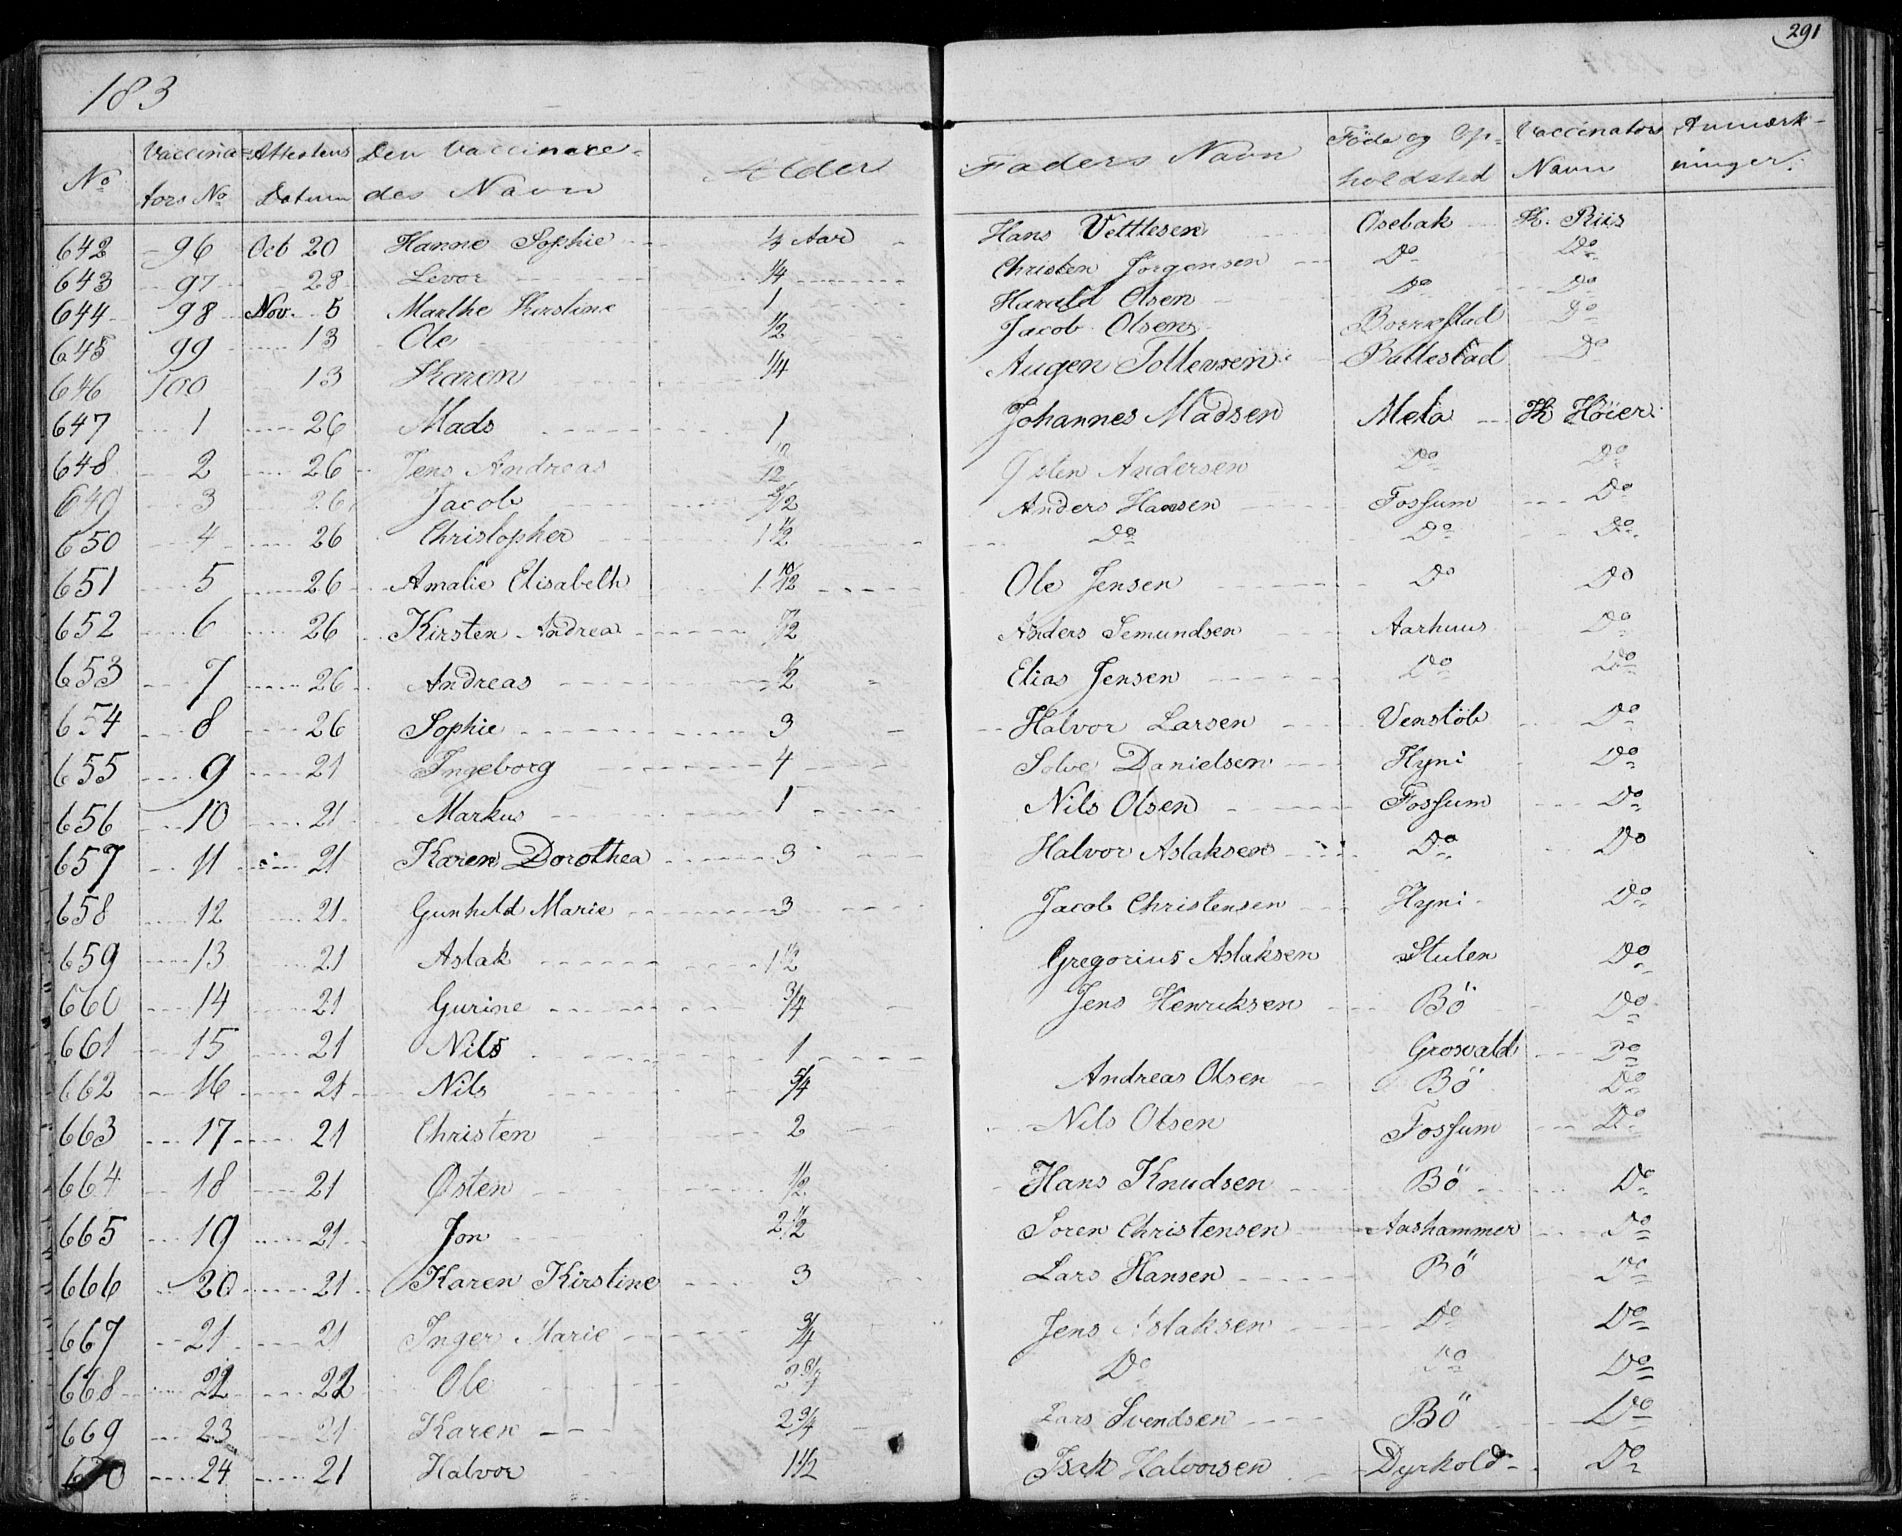 291
183
No Vaccina= tors No Attestens Datum Den Vaccinere= des Navn Alder Faders Navn Föde og Op= holdsted Vaccinators Navn Anmærk= ninger.
642 96 Oct 20 Hanne Sophie 1/3 Aar Hans Vettlesen Osebak K. Riis
643 97 28 Levor 1/4 Christen Jörgensen Do Do
644 98 Nov. 5 Marthe Kirstine 1 Harald Olsen Do Do
645 99 13 Ole 1/2 Jacob Olsen Borrestad Do
646 100 13 Karen 1/4 Augen Tollevsen Ballestad Do
647 1 26 Mads 1 Johannes Madsen Mela K Höier
648 2 26 Jens Andreas /12 Östen Andersen Do Do
649 3 26 Jacob /12 Anders Hansen Fossum Do
650 4 26 Christopher 1 1/2 Do Do Do
651 5 26 Amalie Elisabeth 1 10/12 Ole Jensen Do Do
652 6 26 Kirsten Andrea 7/12 Anders Semundsen Aarhuus Do
653 7 26 Andreas 1/2 Elias Jensen Do Do
654 8 26 Sophie 3 Halvor Larsen Venstöb Do
655 9 21 Ingeborg 4 Solve Danielsen Hyni Do
656 10 21 Markus 1 Nils Olsen Fossum Do
657 11 21 Karen Dorothea 3 Halvor Aslaksen Do Do
658 12 21 Gunhild Marie 3 Jacob Christensen Hyni Do
659 13 21 Aslak 1 1/2 Gregorius Aslaksen Stulen Do
660 14 21 Gurine 3/4 Jens Henriksen Bö Do
661 15 21 Nils 1 Grosvald Do
662 16 21 Nils 5/4 Andreas Olsen Bö Do
663 17 21 Christen 2 Nils Olsen Fossum Do
664 18 21 Østen 1/2 Hans Knudsen Bö Do
665 19 21 Jon 2 1/2 Soren Christensen Aashammer Do
666 20 21 Karen Kirstine 3 Lars Hansen Bö Do
667 21 21 Inger Marie 3/4 Jens Aslaksen Do Do
668 22 22 Ole Do Do Do
669 23 21 Karen 2 3/4 Lars Svendsen Bö Do
670 24 21 Halvor 1 1/2 Isak Halvorsen Dyrkold Do